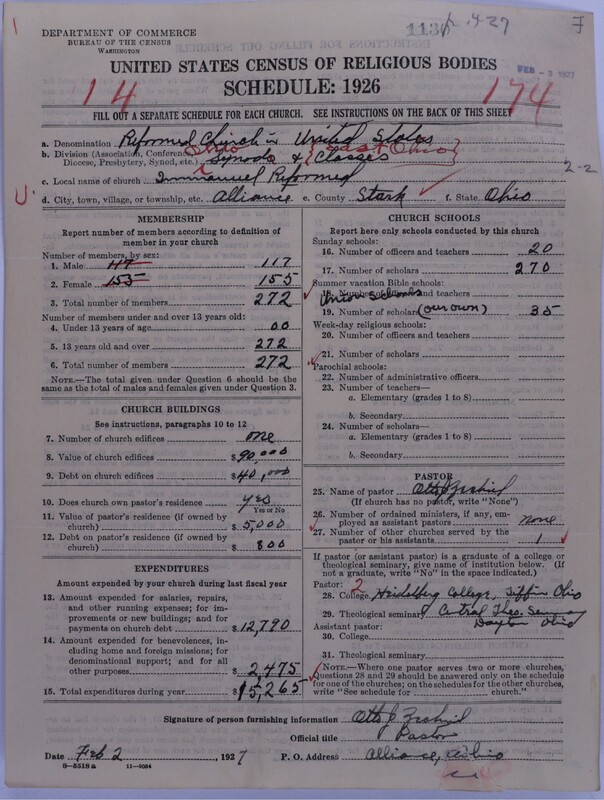 DEPARTMENT OF COMMERCE
BUREAU OF THE CENSUS
WASHINGTON
1136
p. 427
FEB - 3 1927
UNITED STATES CENSUS OF RELIGIOUS BODIES
SCHEDULE: 1926
14
174
FILL OUT A SEPARATE SCHEDULE FOR EACH CHURCH. SEE INSTRUCTIONS ON THE BACK OF THIS SHEET
a. Denomination Reformed Church in United States
b. Division (Association, Conference, Ohio {East Ohio}
Diocese, Presbytery, Synod, etc.) Synods & Classes
c. Local name of church Immanuel Reformed
2-2
d. City, town, village, or township, etc. Alliance e. County Stark f. State Ohio
MEMBERSHIP
Report number of members according to definition of
member in your church
Number of members, by sex:
1. Male 117 117
2. Female 155 155
3. Total number of members 272
Number of members under and over 13 years old:
4. Under 13 years of age 00
5. 13 years old and over 272
6. Total number of members 272
NOTE.—The total given under Question 6 should be
the same as the total of males and females given under Question 3.
CHURCH BUILDINGS
See instructions, paragraphs 10 to 12
7. Number of church edifices one
8. Value of church edifices $90,000
9. Debt on church edifices $40,000
10. Does church own pastor's residence yes
Yes or No
11. Value of pastor's residence (if owned by
church) $5,000
12. Debt on pastor's residence (if owned by
church) $800
EXPENDITURES
Amount expended by your church during last fiscal year
13. Amount expended for salaries, repairs,
and other running expenses; for im-
provements or new buildings; and for
payments on church debt $12,790
14. Amount expended for benevolences, in-
cluding home and foreign missions; for
denominational support; and for all
other purposes $2,475
15. Total expenditures during year $15,265
CHURCH SCHOOLS
Report here only schools conducted by this church
Sunday schools:
16. Number of officers and teachers 20
17. Number of scholars 270
Summer vacation Bible schools:
18. Number of officers and teachers
Union Schools
19. Number of scholars (our own) 35
Week-day religious schools:
20. Number of officers and teachers
21. Number of scholars
Parochial schools:
22. Number of administrative officers
23. Number of teachers—
a. Elementary (grades 1 to 8)
b. Secondary
24. Number of scholars—
a. Elementary (grades 1 to 8)
b. Secondary
PASTOR
25. Name of pastor Otto J.
(If church has no pastor, write "None")
26. Number of ordained ministers, if any, em-
ployed as assistant pastors none
27. Number of other churches served by the
pastor or his assistants 1
If pastor (or assistant pastor) is a graduate of a college or
theological seminary, give name of institution below. (If
not a graduate, write "No" in the space indicated.)
Pastor: 2
28. College Heidelberg College, Tiffin Ohio
29. Theological seminary Central Theo. Seminary
Assistant pastor: Dayton Ohio
30. College
31. Theological seminary
NOTE.—Where one pastor serves two or more churches,
Questions 28 and 29 should be answered only on the schedule
for one of the churches; on the schedules for the other churches,
write "See schedule for church."
Signature of person furnishing information Otto J.
Official title Pastor
Date Feb 2 1927 P. O. Address Alliance, Ohio
8-5518a 11-9084